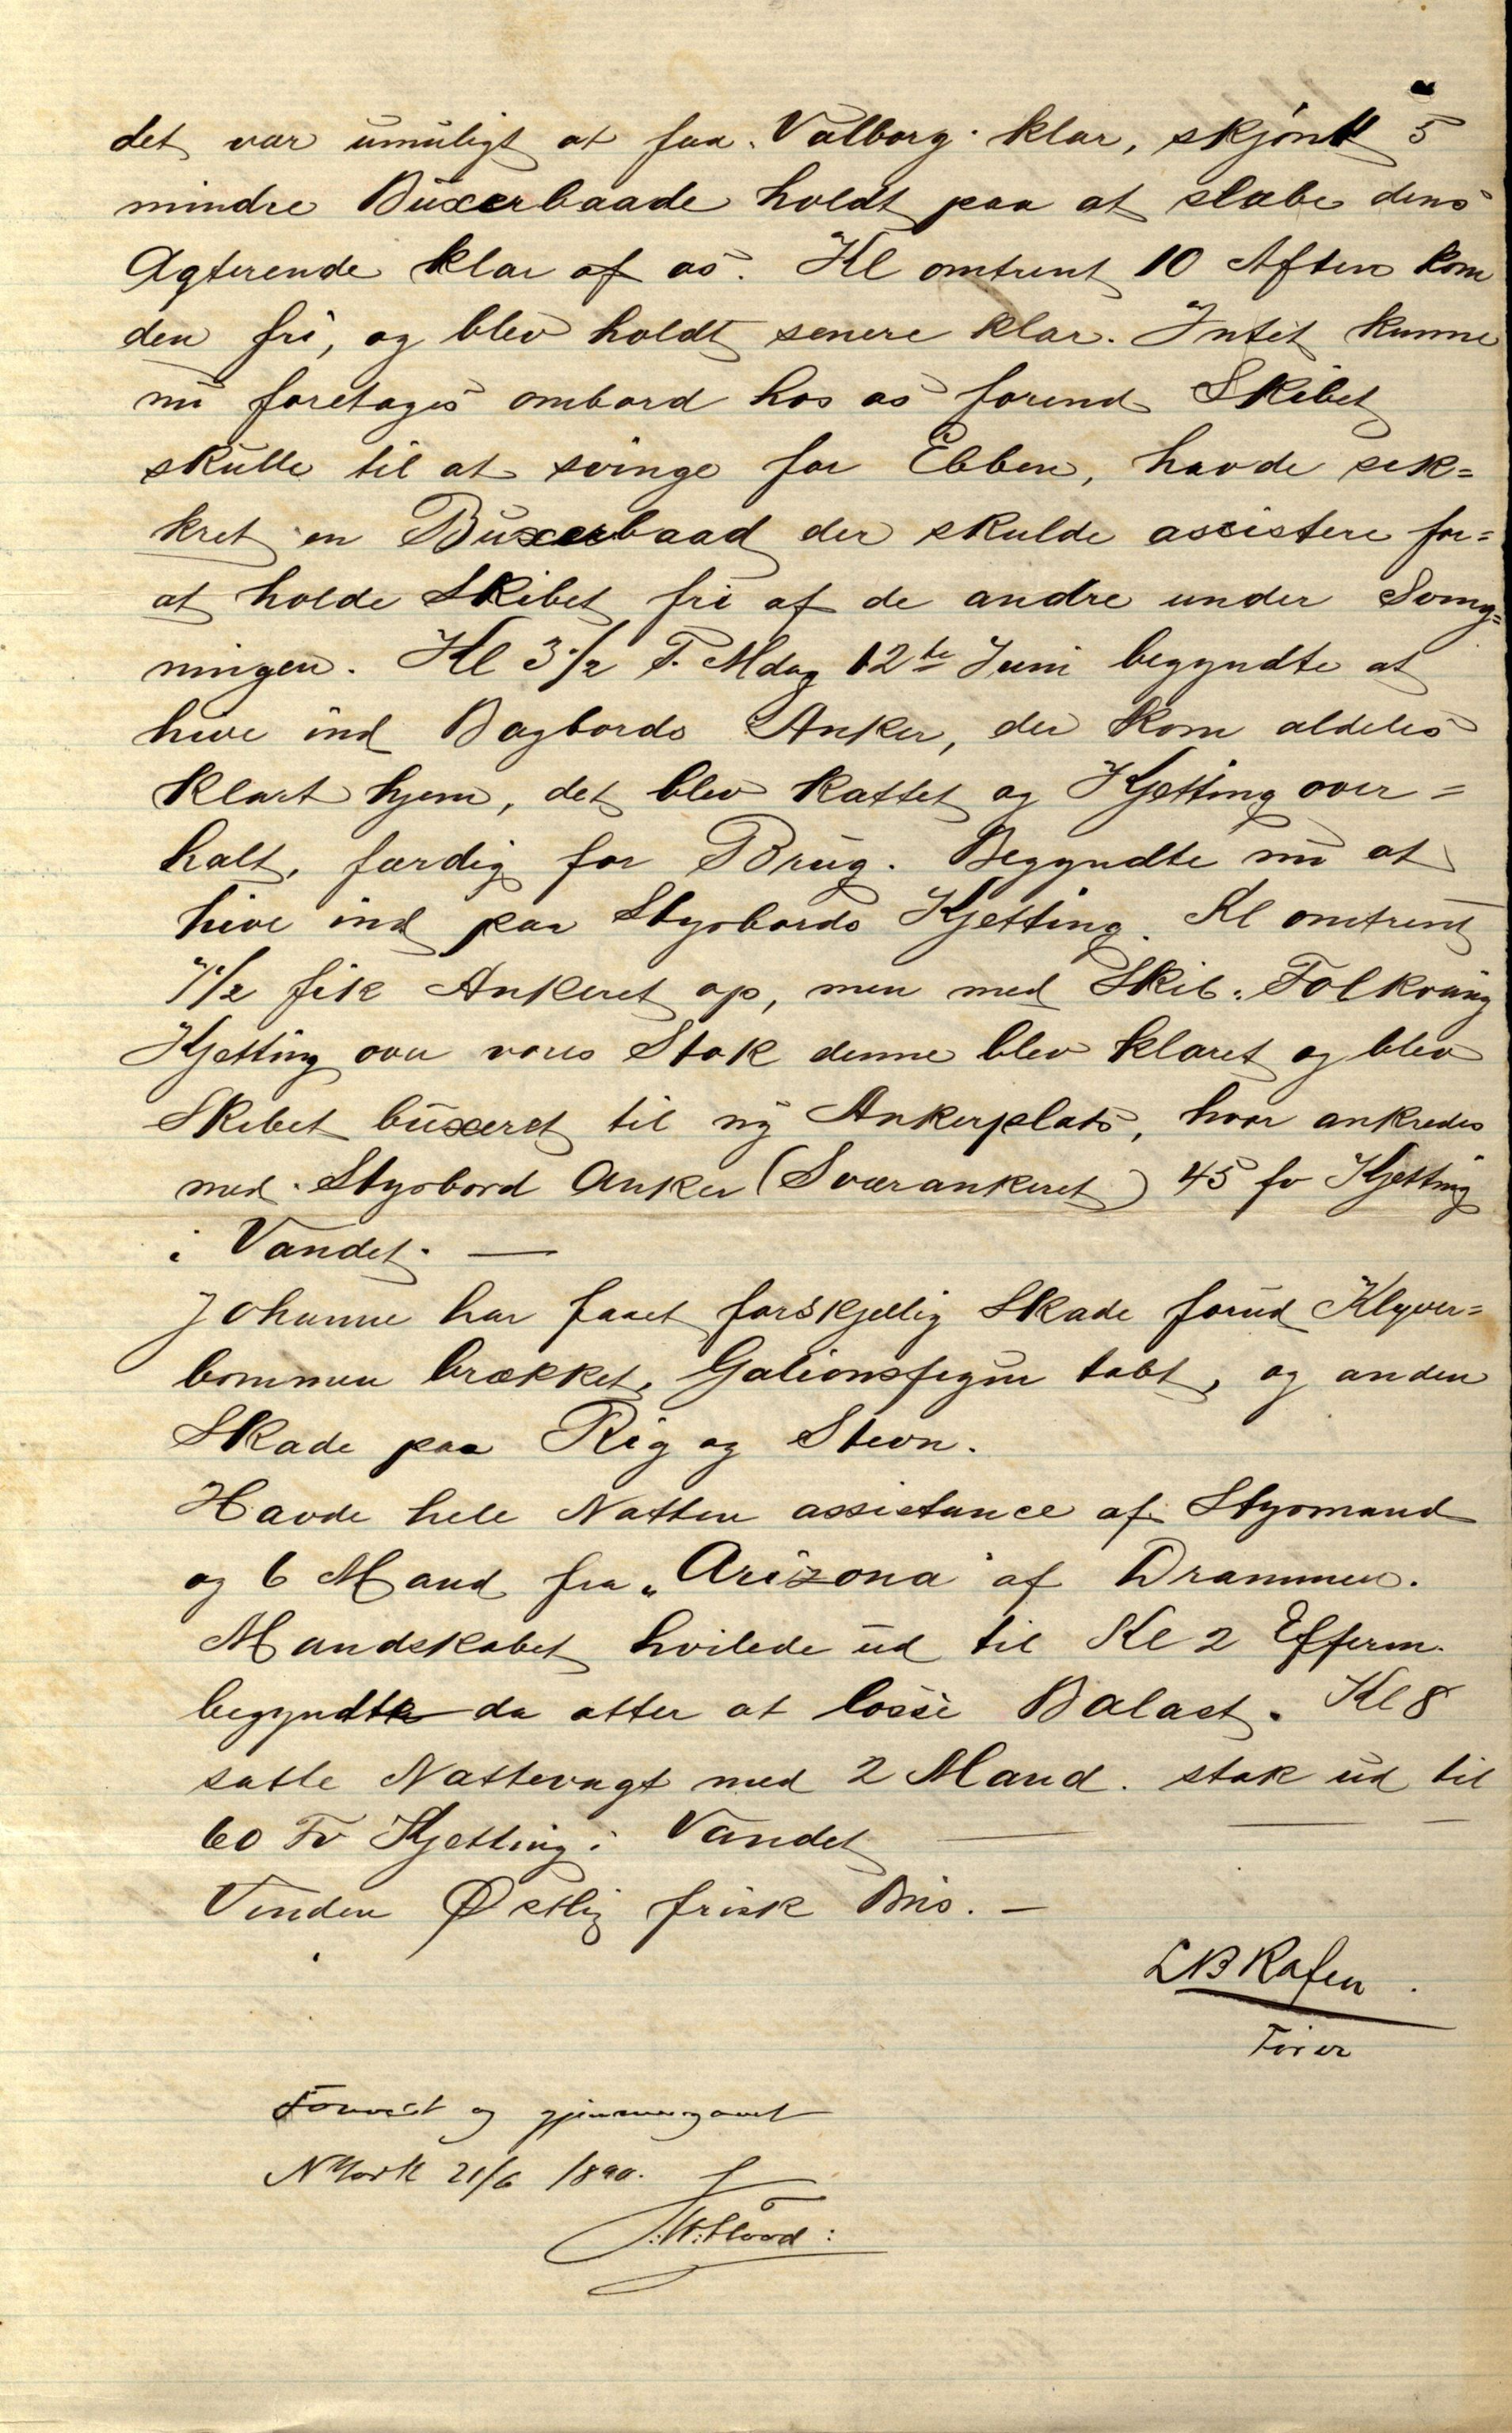 det var umuligt at faa „Valborg" klar, skjønt 5
mindre Buxerbaade holdt paa at slæbe dens
Agterende klar af os. Kl omtrent 10 Aften kom
den fri, og blev holdt senere klar. Intet kunne
nu foretages ombord hos os forend Skibet
skulle til at svinge for Ebben, havde sek=
kret en Buxerbaad der skulde assistere for=
at holde Skibet fri af de andre under Sving=
ningen. Kl 3 1/2 F. Mdag 12te Juni begyndte at
hive ind Bagbords Anker, der kom aldeles
klart hjem, det blev kattet og Kjetting over=
halt, færdig for Brug. Begyndte nu at
hive ind paa Styrbords Kjetting. Kl omtrent
7 1/2 fik Ankeret op, men med Skib „Folkvang
Kjetting over vores Stok denne blev klaret og blev
Skibet buxeret til ny Ankerplads, hvor ankredes
med Styrbord Anker (Sværankeret) 45 fv Kjetting
i Vandet. —
Johanne har faaet forskjellig Skade forud Klyver=
bommen brækket, Galionsfigur tabt, og anden
Skade paa Rig og Stevn.
Havde hele Natten assistance af Styrmand
og 6 Mand fra „Arizona" af Drammen.
Mandskabet hvilede ud til Kl 2 Efterm.
begyndte da atter at losse Balast. Kl 8
satte Nattevagt med 2 Mand. stak ud til
60 Fv Kjetting i Vandet
Vinden Østlig frisk Bris. —
LB Rafen
Fører
Forevist og gjennemgaaet
N York 21/6 1890.